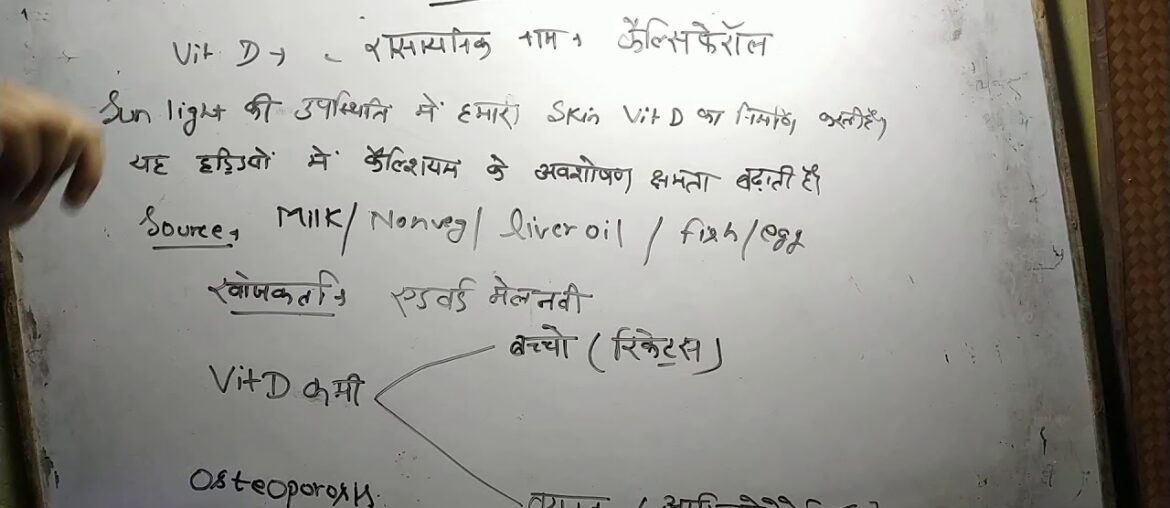 Vit D → रासायनिक नाम → कैल्सिफेरॉल
Sun light की उपस्थिति में हमारी Skin Vit D का निर्माण करती है।
यह हड्डियों में कैल्शियम के अवशोषण क्षमता बढ़ाती है।
Source → Milk / Nonveg / liver oil / fish / egg
खोजकर्ता → एडवर्ड मेलनवी
बच्चो (रिकेट्स)
Vit D कमी
Osteoporosis